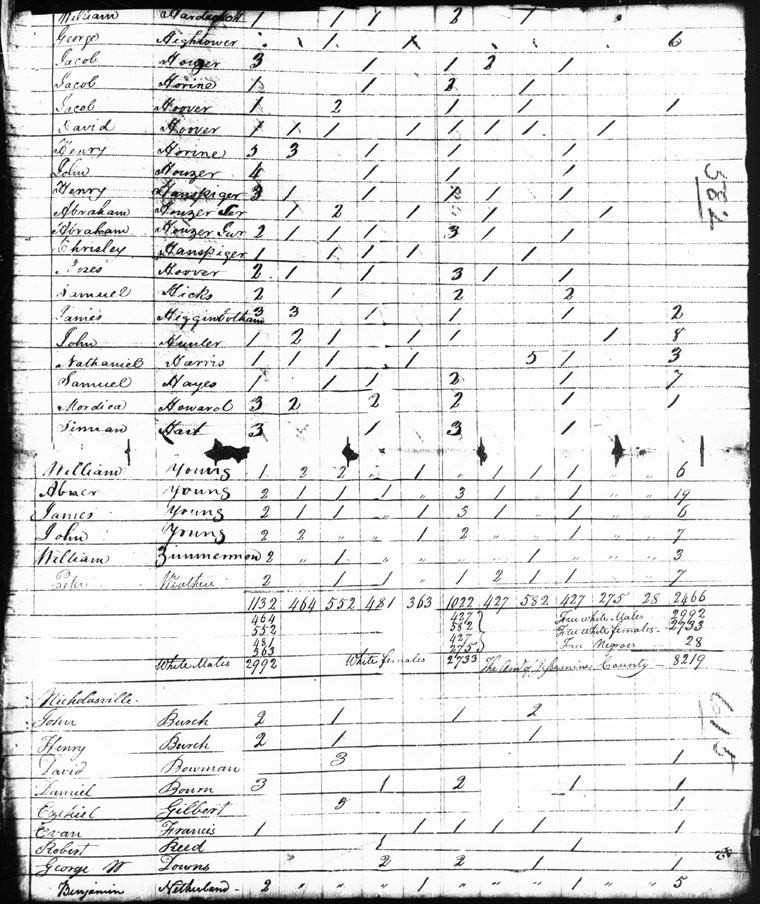 William Hardigrett 1 1 1 2 1
George Hightower . . 1 1 6
Jacob Houzer 3 1 1 2 1
Jacob Horine 1 1 2 1
Jacob Hoover 1 2 1 1 1
David Hoover 1 1 1 1 1 1 1 1
Henry Horine 5 3 1 1 1
John Houzer 4 1 1 1
Henry Hanspiger 3 1 1 1 1
Abraham Houzer Ser 1 2 1 1 1
Abraham Houzer Jur 2 1 1 1 3 1 1
Chrisley Hanspiger 1 1 1 1 1
Moses Hoover 2 1 1 3 1 1
Samuel Hicks 2 1 2 2
James Higginbotham 3 3 1 1 1 2
John Hunter 1 2 1 1 1 1 8
Nathaniel Harris 1 1 1 1 5 1 3
Samuel Hayes 1 1 1 2 1 7
Mordica Howard 3 2 2 2 1 1
Hart 3 1 3 1
William Young 1 2 2 " 1 " 1 1 1 " " 6
Abner Young 2 1 1 1 " 3 1 " 1 " " 19
James Young 2 1 1 " 1 3 1 " 1 " " 6
John Young 2 2 " " 1 2 " " 1 " " 7
William Zimmermon 2 " 1 " " " " 1 " " " 3
Peter 2 " 1 1 " 1 2 1 1 " " 7
1132 464 552 481 363 1022 427 582 427 275 28 2466
464 427 Free white Males 2992
552 582 Free white females - 2733
481 427 Free Negroes 28
363 275
White Males 2992 White females 2733 The Amt of Jessamine County - 8219
Nicholasville.
John Burch 2 1 1 2
Henry Burch 2 1 1
David Bowman 3 1
Daniel Bourn 3 1 2 1 1
Ezekiel Gilbert 5 1
Evan Francis 1 1 1 1 1 1
Robert Reed 1 1
George W Downs 2 2 1 1
Benjamin Netherland - 2 " " " 1 " " " 1 " " 5
582
615
42